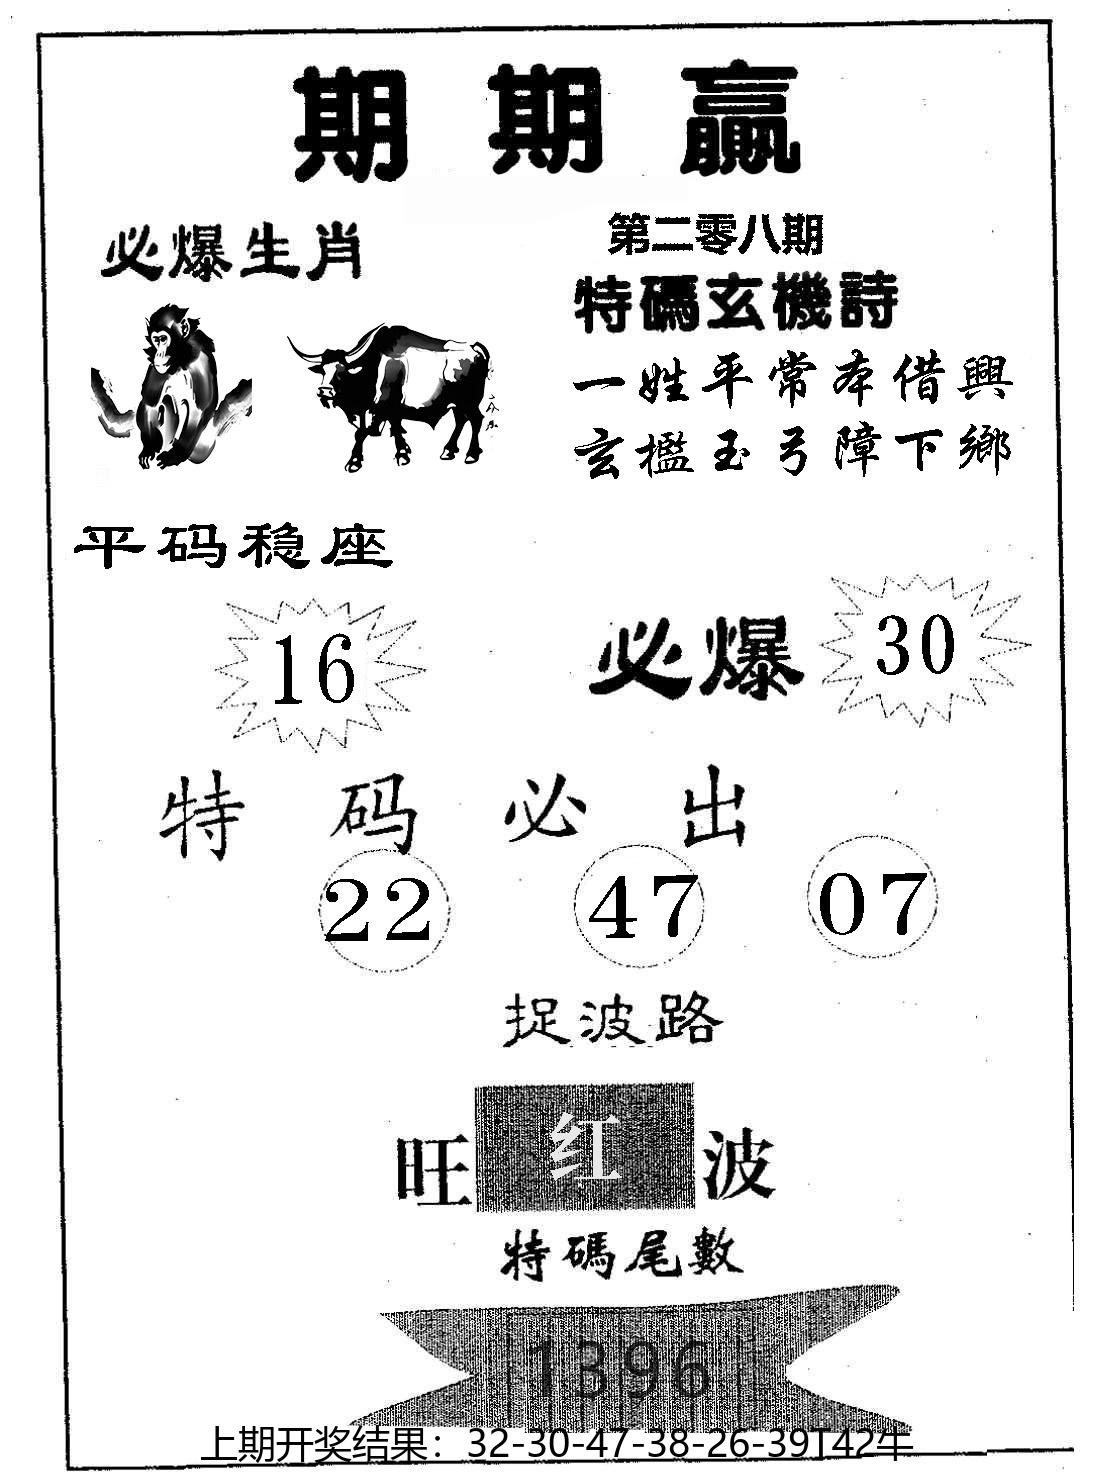 期期贏
必爆生肖
第二零八期
特碼玄機詩
一姓平常本借興
玄檻玉弓障下鄉
平码稳座
16
必爆 30
特码必出
22 47 07
捉波路
旺红波
特碼尾數
1396
上期开奖结果：32-30-47-38-26-39T42牛